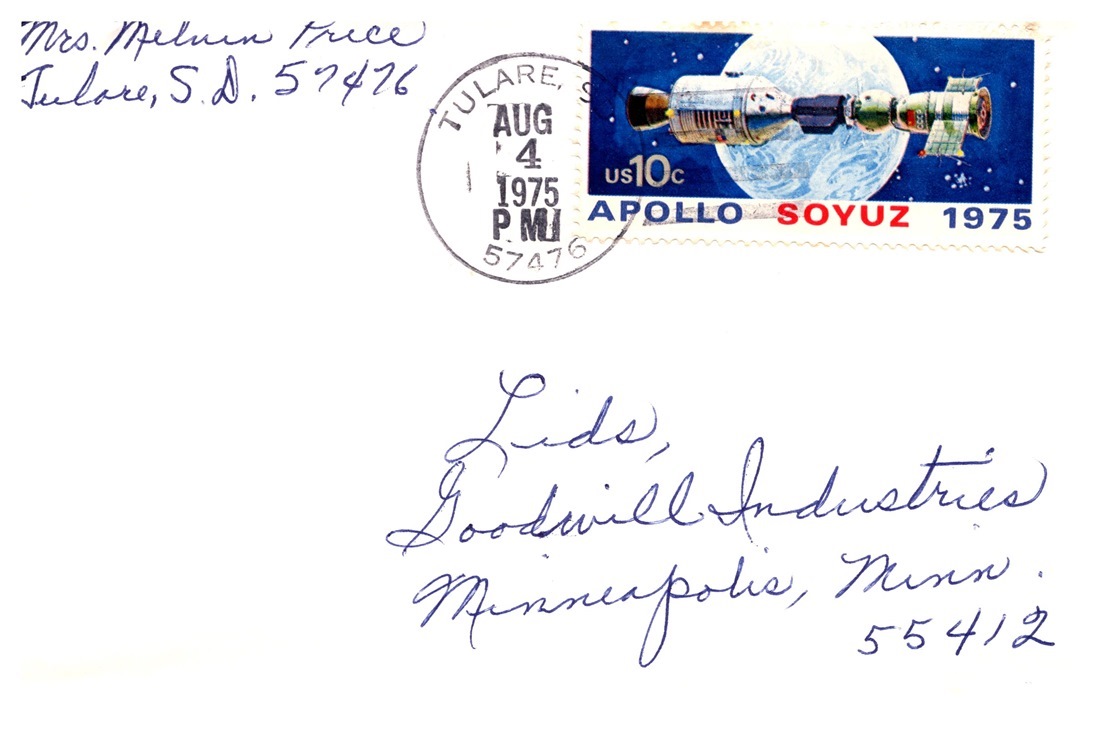 Mrs. Melvin Price
Tulare, S.D. 57476
TULARE, S
AUG
4
1975
PM
57476
US10c
APOLLO SOYUZ 1975
Lids,
Goodwill Industries
Minneapolis, Minn.
55412